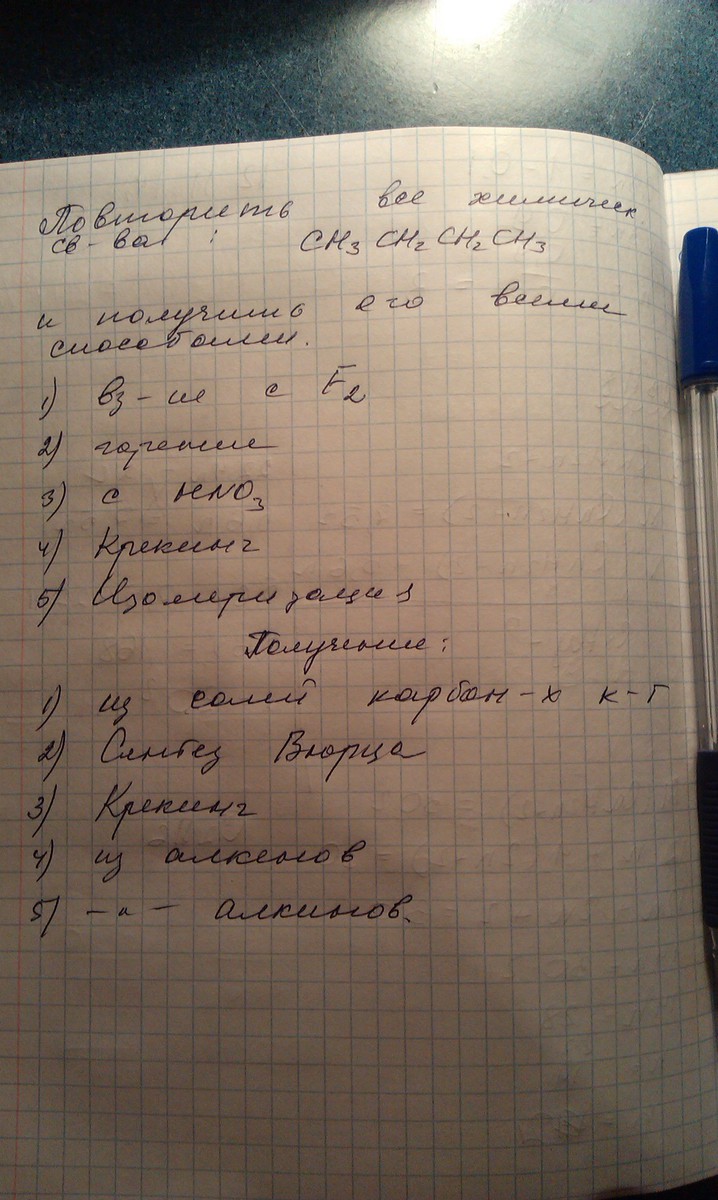 Повторить все химическ
св-ва : CH₃ CH₂ CH₂ CH₃
и получить его всеми
способами.
1) вз-ие с F₂
2) горение
3) с HNO₃
4) Крекинг
5) Изомеризация
Получение:
1) из солей карбон-х к-т
2) Синтез Вюрца
3) Крекинг
4) из алкенов
5) -"- алкинов.